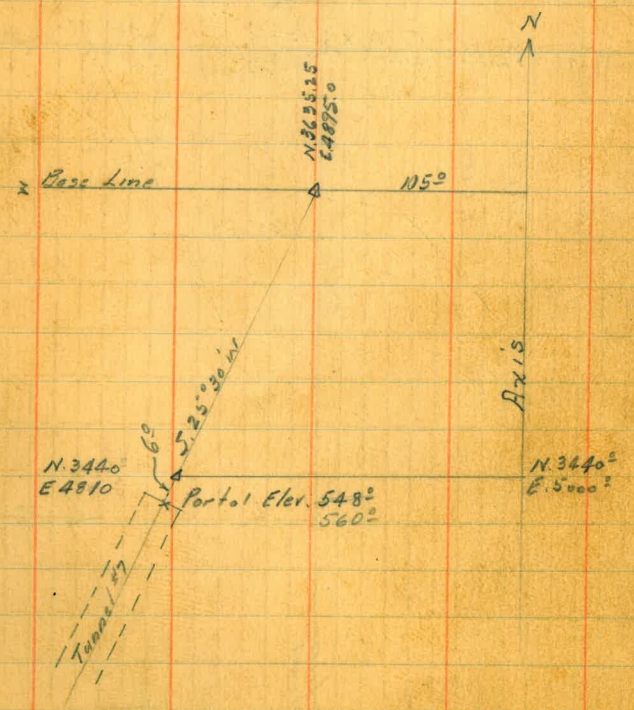 N
N.3635.25
E.4895.0
W Base Line
105º
S.25°30'W
Axis
6º
N.3440º
E 4810
N.3440º
E.5000º
Portal Elev. 548º
560º
Tunnel #7